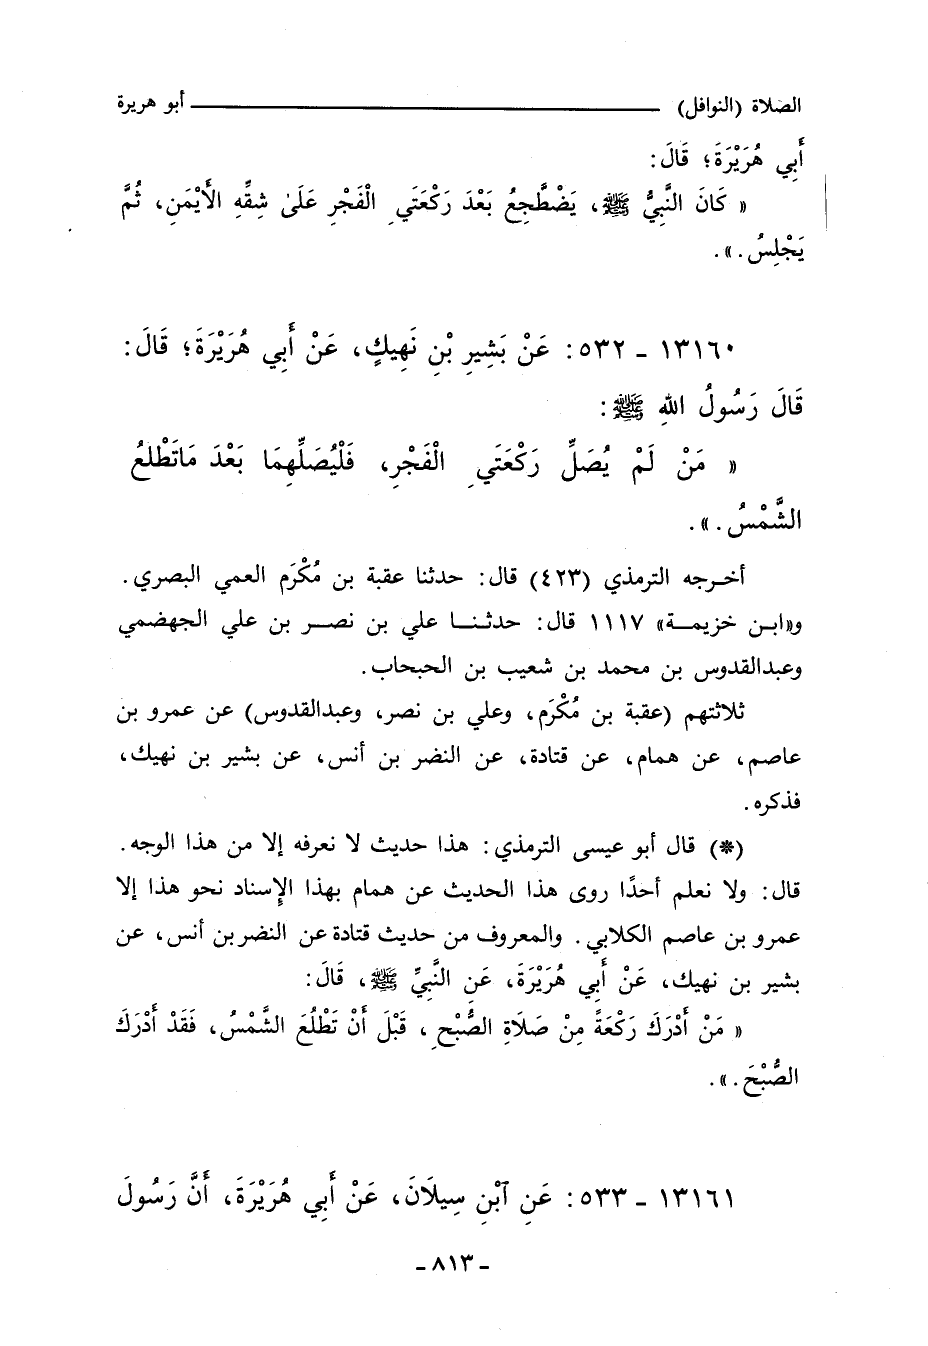 الصلاة (النوافل) ــــــــــــــــــــ أبو هريرة
أَبِي هُرَيْرَةَ؛ قَالَ:
« كَانَ النَّبِيُّ ﷺ، يَضْطَّجِعُ بَعْدَ رَكْعَتَيِ الْفَجْرِ عَلَىٰ شِقِّهِ الأَيْمَنِ، ثُمَّ
يَجْلِسُ . ».
١٣١٦٠ ـ ٥٣٢: عَنْ بَشِيرِ بْنِ نَهِيكٍ، عَنْ أَبِي هُرَيْرَةَ؛ قَالَ:
قَالَ رَسُولُ اللهِ ﷺ:
« مَنْ لَمْ يُصَلِّ رَكْعَتَيِ الْفَجْرِ، فَلْيُصَلِّهِمَا بَعْدَ مَاتَطْلُعُ
الشَّمْسُ . ».
أخرجه الترمذي (٤٢٣) قال: حدثنا عقبة بن مُكْرَم العمي البصري.
و«ابن خزيمة» ١١١٧ قال: حدثنا علي بن نصر بن علي الجهضمي
وعبدالقدوس بن محمد بن شعيب بن الحبحاب.
ثلاثتهم (عقبة بن مُكْرَم، وعلي بن نصر، وعبدالقدوس) عن عمرو بن
عاصم، عن همام، عن قتادة، عن النضر بن أنس، عن بشير بن نهيك،
فذكره.
(*) قال أبو عيسى الترمذي: هذا حديث لا نعرفه إلا من هذا الوجه.
قال: ولا نعلم أحدًا روى هذا الحديث عن همام بهذا الإسناد نحو هذا إلا
عمرو بن عاصم الكلابي. والمعروف من حديث قتادة عن النضر بن أنس، عن
بشير بن نهيك، عَنْ أَبِي هُرَيْرَةَ، عَنِ النَّبِيِّ ﷺ، قَالَ:
« مَنْ أَدْرَكَ رَكْعَةً مِنْ صَلَاةِ الصُّبْحِ، قَبْلَ أَنْ تَطْلُعَ الشَّمْسُ، فَقَدْ أَدْرَكَ
الصُّبْحَ . ».
١٣١٦١ ـ ٥٣٣: عَنِ ٱبْنِ سِيلَانَ، عَنْ أَبِي هُرَيْرَةَ، أَنَّ رَسُولَ
ـ ٨١٣ ـ